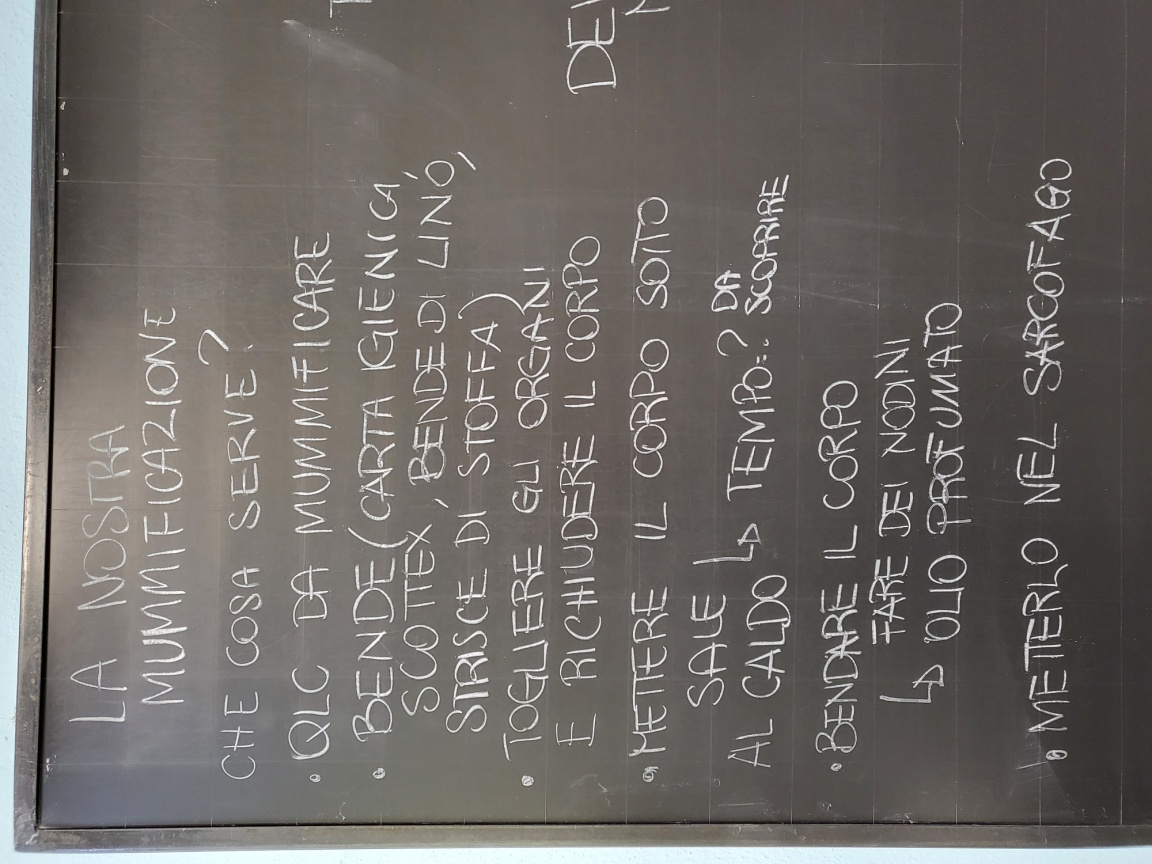 LA NOSTRA
MUMMIFICAZIONE
CHE COSA SERVE?
• QLC DA MUMMIFICARE
• BENDE (CARTA IGIENICA,
SCOTTEX, BENDE DI LINO,
STRISCE DI STOFFA)
• TOGLIERE GLI ORGANI
E RICHIUDERE IL CORPO
• METTERE IL CORPO SOTTO
SALE
AL CALDO ↳ TEMPO=? DA SCOPRIRE
• BENDARE IL CORPO
FARE DEI NODINI
↳ OLIO PROFUMATO
• METTERLO NEL SARCOFAGO